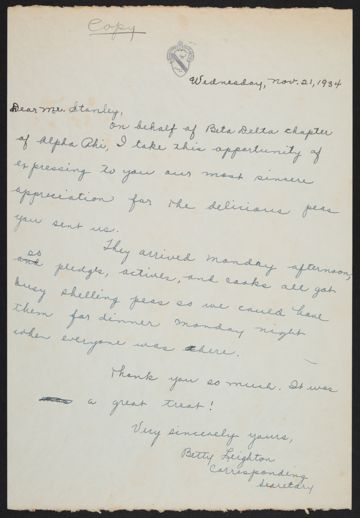 Copy
Wednesday, Nov. 21, 1934
Dear Mr. Stanley,
On behalf of Beta Delta chapter
of Alpha Phi, I take this opportunity of
expressing to you our most sincere
appreciation for the delicious peas
you sent us.
They arrived Monday afternoon,
so
and pledges, actives, and cooks all got
busy shelling peas so we could have
them for dinner Monday night
when everyone was there.
Thank you so much. It was
a great treat!
Very sincerely yours,
Betty Leighton
Corresponding
Secretary